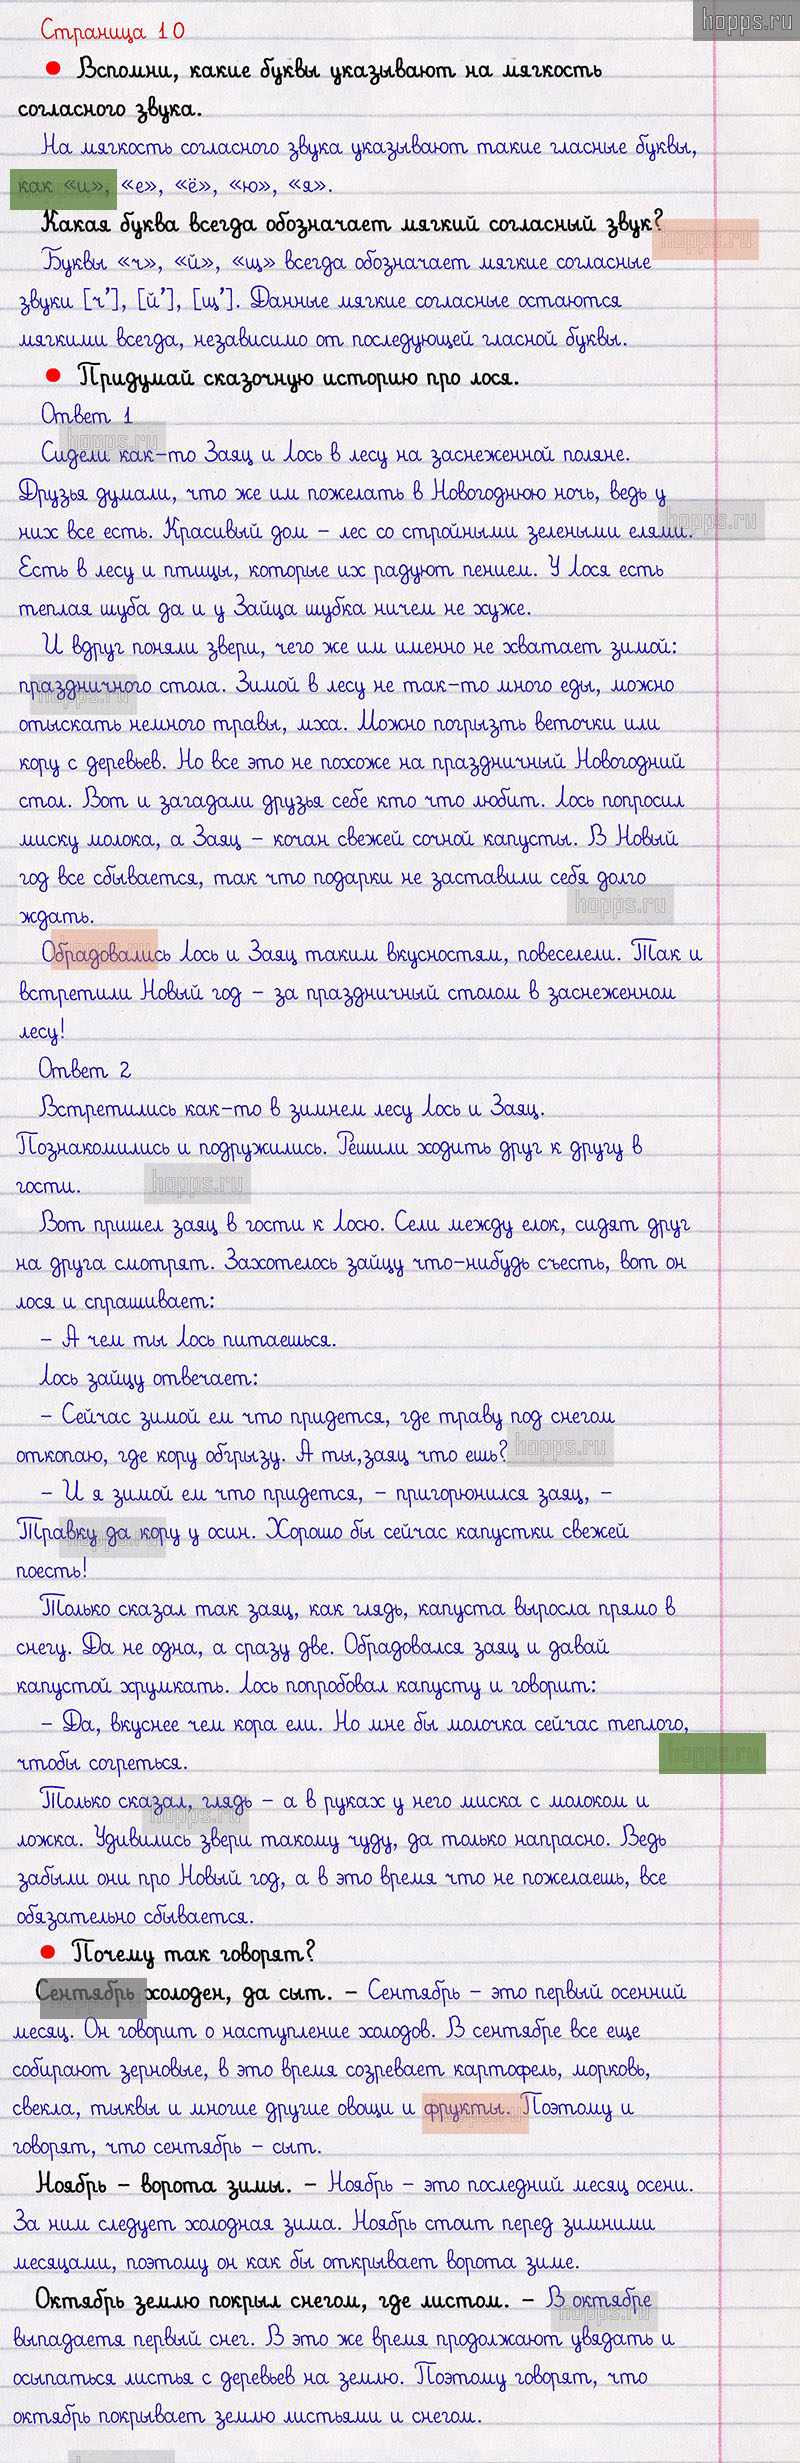 hopps.ru
Страница 10
Вспомни, какие буквы указывают на мягкость
согласного звука.
На мягкость согласного звука указывают такие гласные буквы,
как «и», «е», «ё», «ю», «я».
Какая буква всегда обозначает мягкий согласный звук?
hopps.ru
Буквы «ч», «й», «щ» всегда обозначает мягкие согласные
звуки [ч’], [й’], [щ’]. Данные мягкие согласные остаются
мягкими всегда, независимо от последующей гласной буквы.
Придумай сказочную историю про лося.
Ответ 1
hopps.ru
Сидели как-то Заяц и Лось в лесу на заснеженной поляне.
Друзья думали, что же им пожелать в Новогоднюю ночь, ведь у
hopps.ru
них все есть. Красивый дом – лес со стройными зелеными елями.
Есть в лесу и птицы, которые их радуют пением. У Лося есть
теплая шуба да и у Зайца шубка ничем не хуже.
И вдруг поняли звери, чего же им именно не хватает зимой:
праздничного стола. Зимой в лесу не так-то много еды, можно
hopps.ru
отыскать немного травы, мха. Можно погрызть веточки или
кору с деревьев. Но все это не похоже на праздничный Новогодний
стол. Вот и загадали друзья себе кто что любит. Лось попросил
миску молока, а Заяц – кочан свежей сочной капусты. В Новый
год все сбывается, так что подарки не заставили себя долго
hopps.ru
ждать.
Обрадовались Лось и Заяц таким вкусностям, повеселели. Так и
встретили Новый год – за праздничный столом в заснеженном
лесу!
Ответ 2
Встретились как-то в зимнем лесу Лось и Заяц.
Познакомились и подружились. Решили ходить друг к другу в
гости.
hopps.ru
Вот пришел заяц в гости к Лосю. Сели между елок, сидят друг
на друга смотрят. Захотелось зайцу что-нибудь съесть, вот он
лося и спрашивает:
– А чем ты Лось питаешься.
Лось зайцу отвечает:
– Сейчас зимой ем что придется, где траву под снегом
откопаю, где кору обгрызу. А ты,заяц что ешь?
hopps.ru
– И я зимой ем что придется, – пригорюнился заяц, –
Травку да кору у осин. Хорошо бы сейчас капустки свежей
hopps.ru
поесть!
Только сказал так заяц, как глядь, капуста выросла прямо в
снегу. Да не одна, а сразу две. Обрадовался заяц и давай
капустой хрумкать. Лось попробовал капусту и говорит:
– Да, вкуснее чем кора ели. Но мне бы молочка сейчас теплого,
hopps.ru
чтобы согреться.
Только сказал, глядь – а в руках у него миска с молоком и
hopps.ru
ложка. Удивились звери такому чуду, да только напрасно. Ведь
забыли они про Новый год, а в это время что не пожелаешь, все
обязательно сбывается.
Почему так говорят?
Сентябрь холоден, да сыт. – Сентябрь – это первый осенний
месяц. Он говорит о наступление холодов. В сентябре все еще
собирают зерновые, в это время созревает картофель, морковь,
свекла, тыквы и многие другие овощи и фрукты. Поэтому и
говорят, что сентябрь – сыт.
Ноябрь – ворота зимы. – Ноябрь – это последний месяц осени.
За ним следует холодная зима. Ноябрь стоит перед зимними
месяцами, поэтому он как бы открывает ворота зиме.
Октябрь землю покрыл снегом, где листом. – В октябре
hopps.ru
выпадаетя первый снег. В это же время продолжают увядать и
осыпаться листья с деревьев на землю. Поэтому говорят, что
октябрь покрывает землю листьями и снегом.